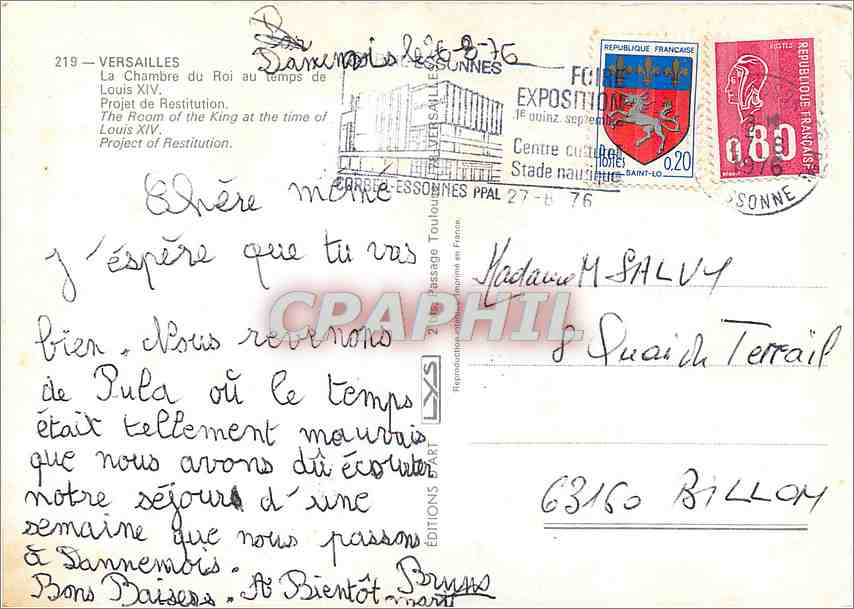 Dannemois le 26-8-76
219 — VERSAILLES
La Chambre du Roi au temps de
Louis XIV.
Projet de Restitution.
The Room of the King at the time of
Louis XIV.
Project of Restitution.
ESSONNES
CORBEIL-ESSONNES PPAL
FOIRE
EXPOSITION
1e quinz. septembre
Centre culturel
Stade nautique
27-8 76
REPUBLIQUE FRANÇAISE
POSTES
0,20
SAINT-LO
POSTES
REPUBLIQUE FRANÇAISE
0.80
1976
ESSONNE
Chère mémé
j'éspère que tu vas
bien. Nous revenons
de Pula où le temps
était tellement mauvais
que nous avons dû écourter
notre séjour d'une
semaine que nous passons
à Dannemois.
Bons Baisers. A Bientôt Bruno
EDITIONS D'ART LYS
Passage Toulouse VERSAILLES
Imprimé en France
CPARPHIL
Madame M SALVY
8 Quai du Terrail
63160 BILLOM